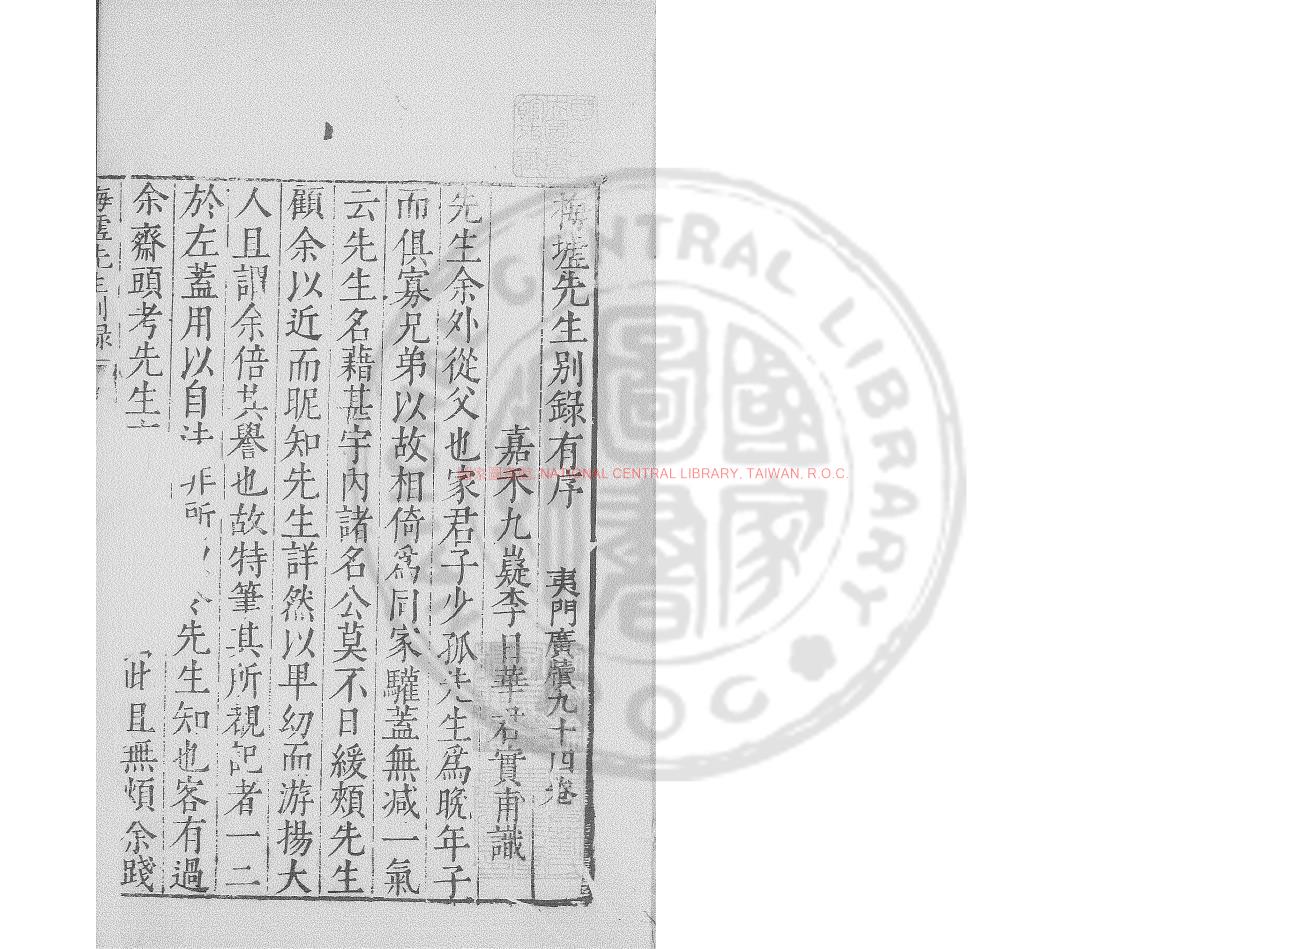 梅墟先生別錄有序 夷門廣牘九十四卷
嘉禾九嶷李日華君實甫識
先生余外從父也家君子少孤先生爲晩年子
而俱寡兄弟以故相倚爲同家驩蓋無減一氣
云先生名藉甚宇內諸名公莫不日緩頰先生
顧余以近而昵知先生詳然以早幼而游揚大
人且謂余倍其譽也故特筆其所覩記者一二
於左蓋用以自 非所 先生知也客有過
余齋頭考先生 此且無煩余踐
梅墟先生別錄
NATIONAL CENTRAL LIBRARY, TAIWAN, R.O.C.
CENTRAL LIBRARY
R.O.C.